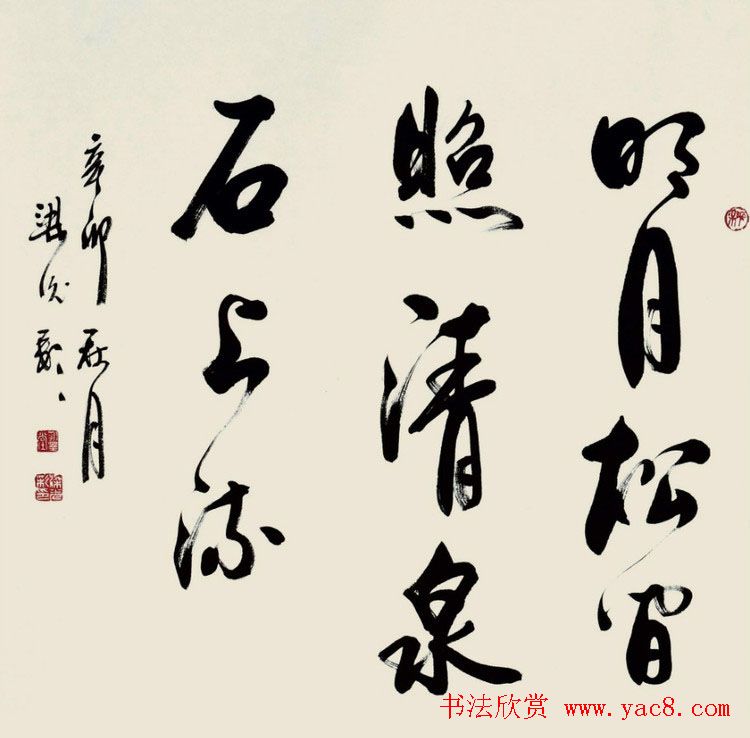 明月松间
照清泉
石上流
辛卯春月
书法欣赏 www.yac8.com